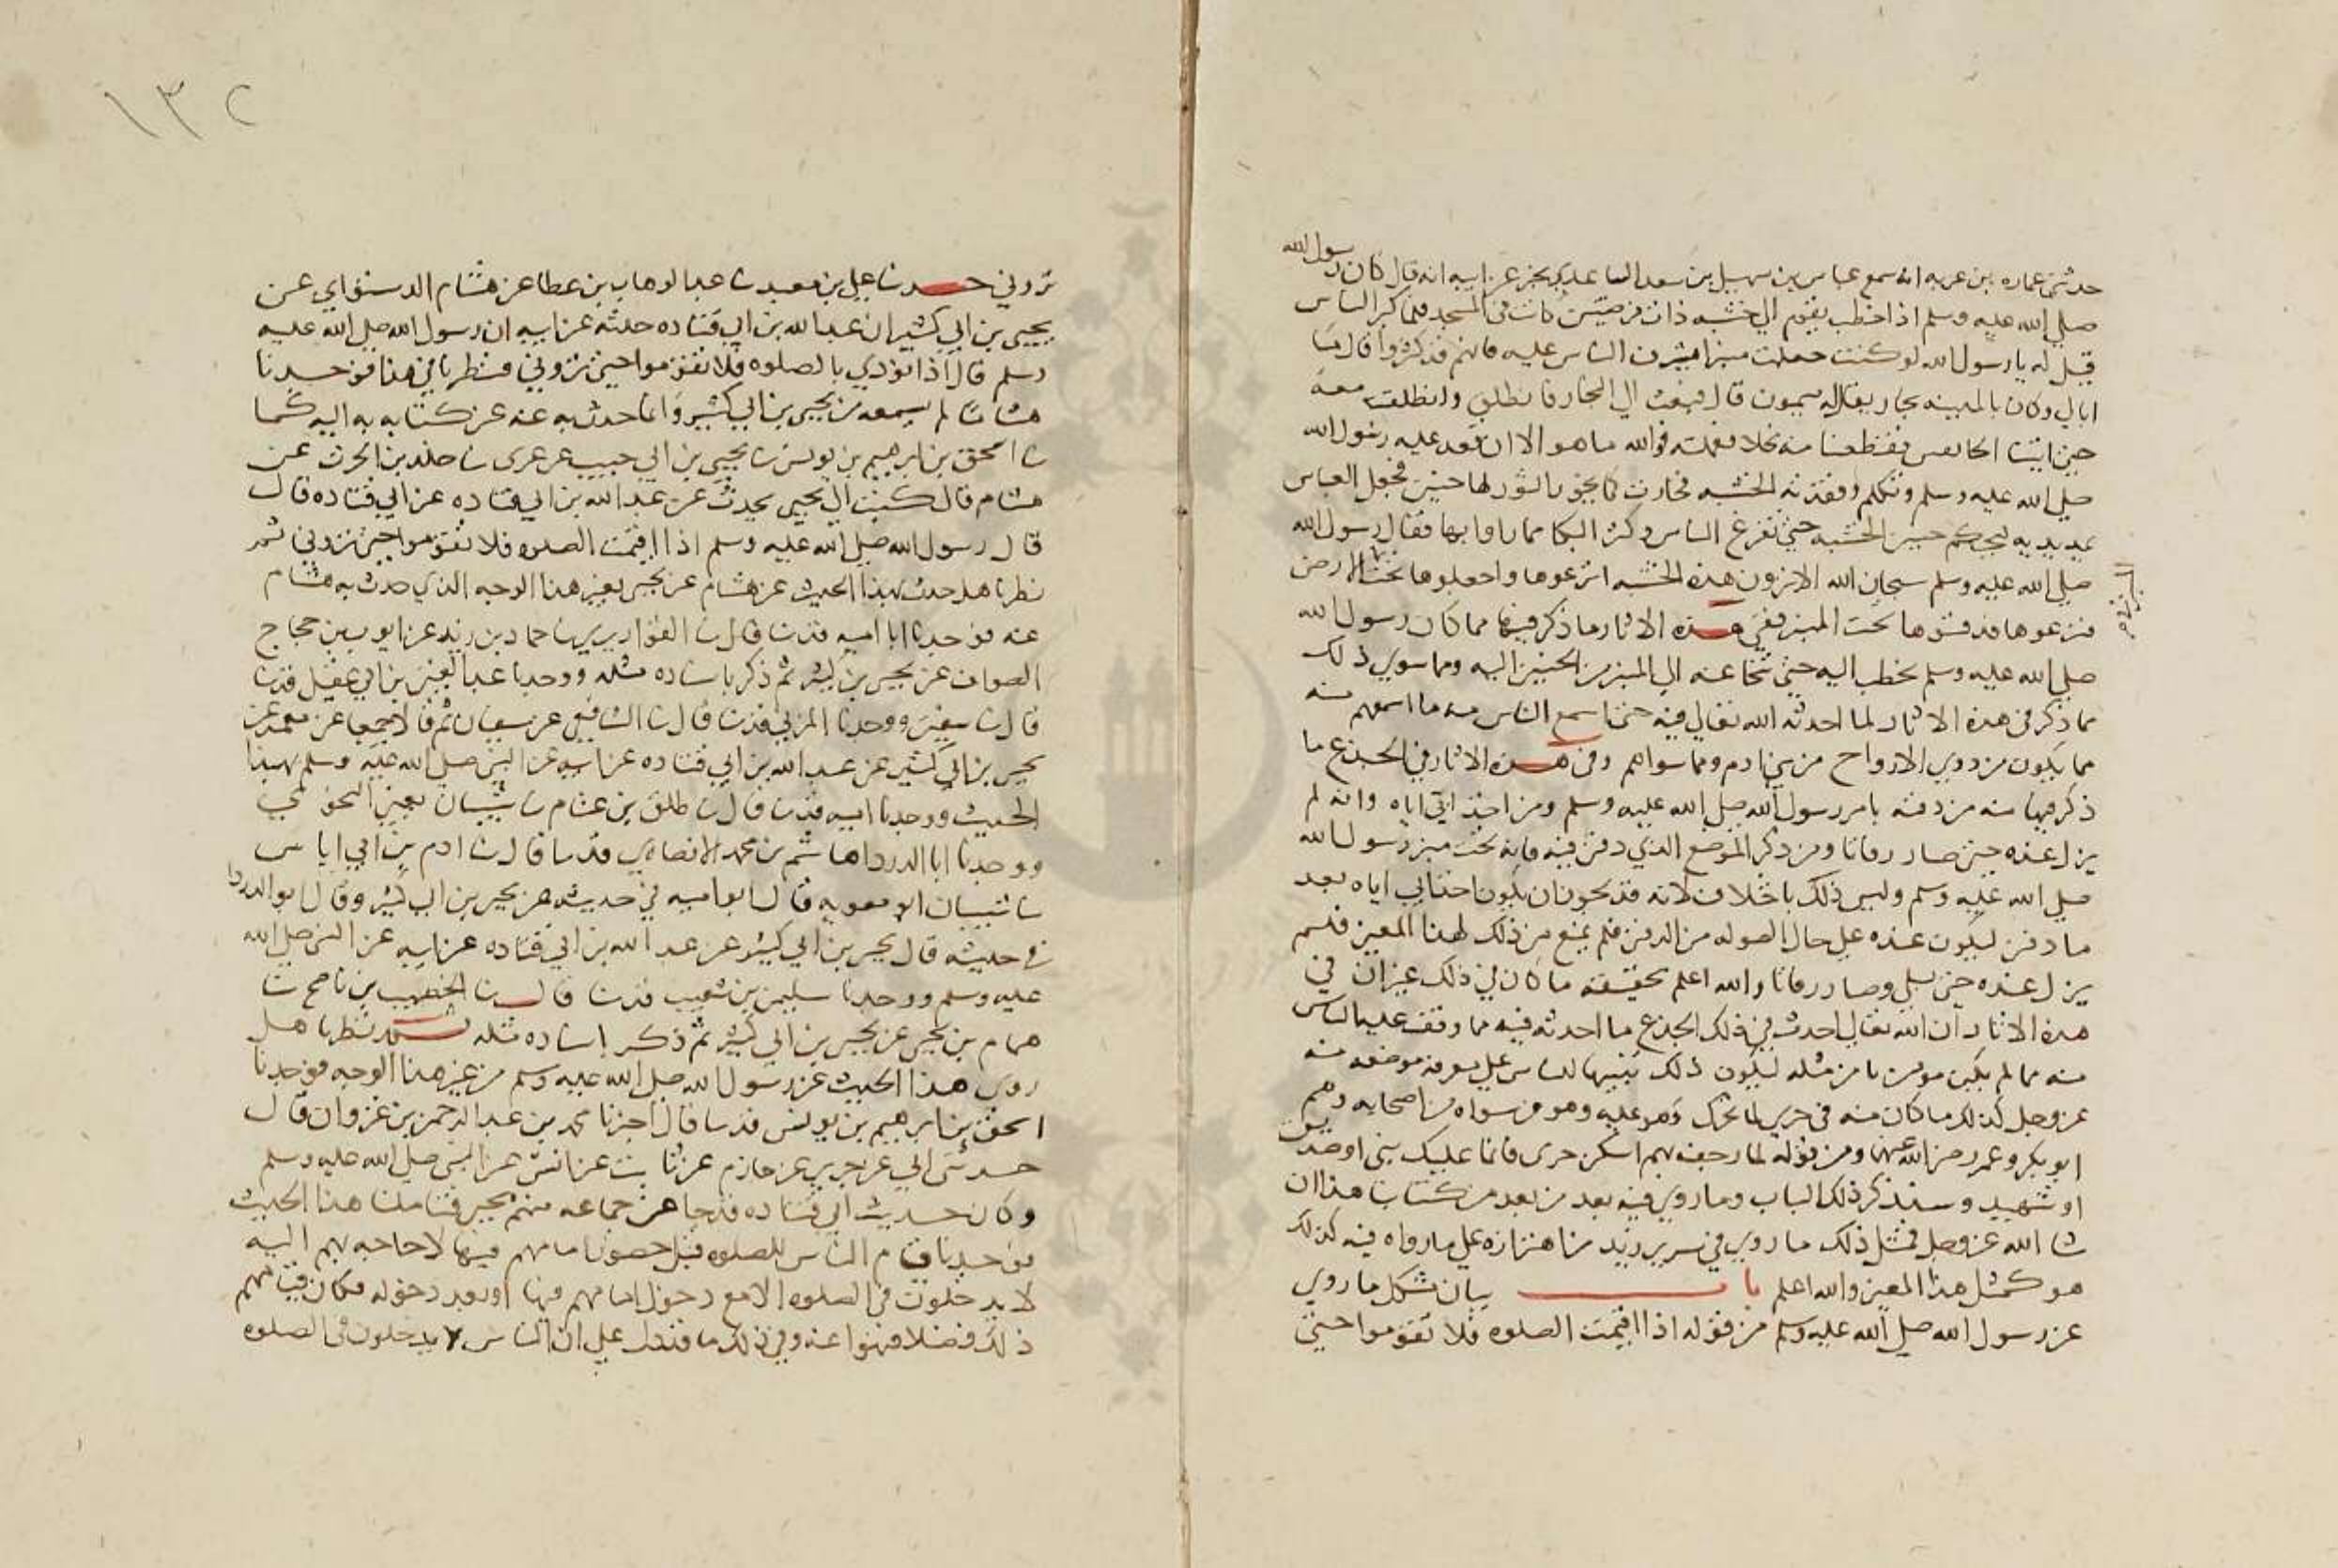 حدثني عماره بن غزيه انه سمع عباس بن سهيل بن سعد الساعدي يخبر عن ابيه انه قال كان رسول الله
صلى الله عليه وسلم اذا خطب يقوم الى خشبه ذات فرضتين كانت في المسجد فلما كثر الناس
قيل له يا رسول الله لو كنت جعلت منبرا تشرف الناس عليه فانهم قد كثروا قال ما
ابالي وكان بالمدينه نجار يقال له ميمون قال فبعث الى النجار فانطلق وانطلقت معه
حتى اتينا الخانقين فقطعنا منه نخلا فعملته فوالله ما هو الا ان قعد عليه رسول الله
صلى الله عليه وسلم وتكلم وفقدته الخشبه فخارت كما يخور الثور لها حنين فجعل العباس
يمد يديه حنين الخشبه حتى تفزع الناس وكثر البكا مما راوا بها فقال رسول الله
صلى الله عليه وسلم سبحان الله الا ترون هذه الخشبه انزعوها واجعلوها تحت الارض
فنزعوها فدفنوها تحت المنبر ففي هذه الاثار ما ذكر فيها مما كان رسول الله
صلى الله عليه وسلم يخطب اليه حتى تنحا عنه الى المنبر من الحنين اليه ومما سوى ذلك
مما ذكر في هذه الاثار لما احدثه الله تعالى فيه حتى اسمع الناس منه ما اسمعهم منه
مما يكون من ذوي الارواح من بني ادم ومما سواهم وفي هذه الاثار في الجذع ما
ذكر فيها منه من دفنه بامر رسول الله صلى الله عليه وسلم ومن اخذ ابي اياه وانه لم
يزل عنده حتى صار رفاتا ومن ذكر الموضع الذي دفن فيه فانه تحت منبر رسول الله
صلى الله عليه وسلم وليس ذلك باختلاف لانه قد يجوز ان يكون اخذ ابي اياه بعد
ما دفن ليكون عنده على حال الصون له من الدفن فلم يمنع من ذلك لهذا المعنى فلم
يزل عنده حتى بلي وصار رفاتا والله اعلم بحقيقه ما كان في ذلك غير ان في
هذه الاثار ان الله تعالى احدث في ذلك الجذع ما احدثه فيه مما وقف عليه الناس
منه مما لم يكن موهوما من مثله ليكون ذلك تنبيها للناس على معرفه موضعه منه
عز وجل كذلك ما كان منه في حرى لما تحرك وهو عليه وهو من سواه من اصحابه وهم
ابو بكر وعمر رضي الله عنهما ومن قوله لما رجف بهم اسكن حرى فانما عليك نبي او صديق
او شهيد وسنذكر ذلك الباب وما روي فيه بعد من بعد من كتابنا هذا ان
شا الله عز وجل فمثل ذلك ما روي في سرير زيد من اهتزازه على ما رواه فيه كذلك
هو كمثل هذا المعنى والله اعلم باب بيان مشكل ما روي
عن رسول الله صلى الله عليه وسلم من قوله اذا اقيمت الصلوه فلا تقوموا حتى
١٣٢
تروني حدثنا علي بن معبد ثنا عبد الوهاب بن عطا عن هشام الدستواي عن
يحيى بن ابي كثير ان عبد الله بن ابي قتاده حدثه عن ابيه ان رسول الله صلى الله عليه
وسلم قال اذا نودي بالصلوه فلا تقوموا حتى تروني فنظرنا في هذا فوجدنا
هشاما لم يسمعه من يحيى بن ابي كثير وانما حدث به عنه عن كتابه به اليه كما
ثنا اسحق بن ابرهيم بن يونس ثنا يحيى بن ابي حبيب عن عربي ثنا خلد بن الحرث عن
هشام قال كتبت الى يحيى يحدث عن عبد الله بن ابي قتاده عن ابي قتاده قال
قال رسول الله صلى الله عليه وسلم اذا اقيمت الصلوه فلا تقوموا حتى تروني ثم
نظرنا هل حدث بهذا الحديث عن هشام عن يحيى بغير هذا الوجه الذي حدث به هشام
عنه فوجدنا ابا اميه قد ثنا قال ثنا القواريري ثنا حماد بن زيد عن ايوب بن حجاج
الصواف عن يحيى بن كثير ثم ذكر باسناده مثله ووجدنا عبد العزيز بن ابي عقيل قد ثنا
قال ثنا سفين ووجدنا المزني قد ثنا قال ثنا الشافعي عن سفيان ثم قالا جميعا عن معمر عن
يحيى بن ابي كثير عن عبد الله بن ابي قتاده عن ابيه عن النبي صلى الله عليه وسلم بهذا
الحديث ووجدنا اميه قد ثنا قال ثنا طلق بن غنام ثنا شيبان يعني النحوي
ووجدنا ابا الدردا هاشم بن محمد الانصاري قد ثنا قال ثنا ادم بن ابي اياس
ثنا شيبان ابو معويه قال ابو اميه في حديثه عن يحيى بن ابي كثير وقال ابو الدردا
في حديثه قال يحيى بن ابي كثير عن عبد الله بن ابي قتاده عن ابيه عن النبي صلى الله
عليه وسلم ووجدنا سليمن بن شعيب قد ثنا قال ثنا الخصيب بن ناصح ثنا
همام بن يحيى عن يحيى بن ابي كثير ثم ذكر باسناده مثله ثم نظرنا هل
روي هذا الحديث عن رسول الله صلى الله عليه وسلم من غير هذا الوجه فوجدنا
اسحق بن ابرهيم بن يونس قد ثنا قال اخبرنا محمد بن عبد الرحمن بن غزوان قال
حدثني ابي عن جرير عن حازم عن ثابت عن انس عن النبي صلى الله عليه وسلم
وكان حديث ابي قتاده قد جا عن جماعه منهم يحيى فتاملنا هذا الحديث
فوجدنا قيام الناس للصلوه قبل حضور امامهم فيها لا حاجه بهم اليه
لا يدخلون في الصلوه الا مع دخول امامهم فيها او بعد دخوله فكان قيامهم
ذلك فضلا فنهوا عنه وفي ذلك ما قد دل على ان الناس لا يدخلون في الصلوه